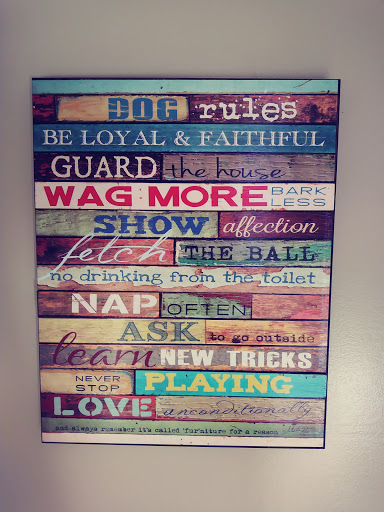 DOG rules
BE LOYAL & FAITHFUL
GUARD the house
WAG MORE BARK LESS
SHOW affection
fetch THE BALL
no drinking from the toilet
NAP OFTEN
ASK to go outside
learn NEW TRICKS
NEVER STOP PLAYING
LOVE unconditionally
and always remember it's called 'fur'niture for a reason